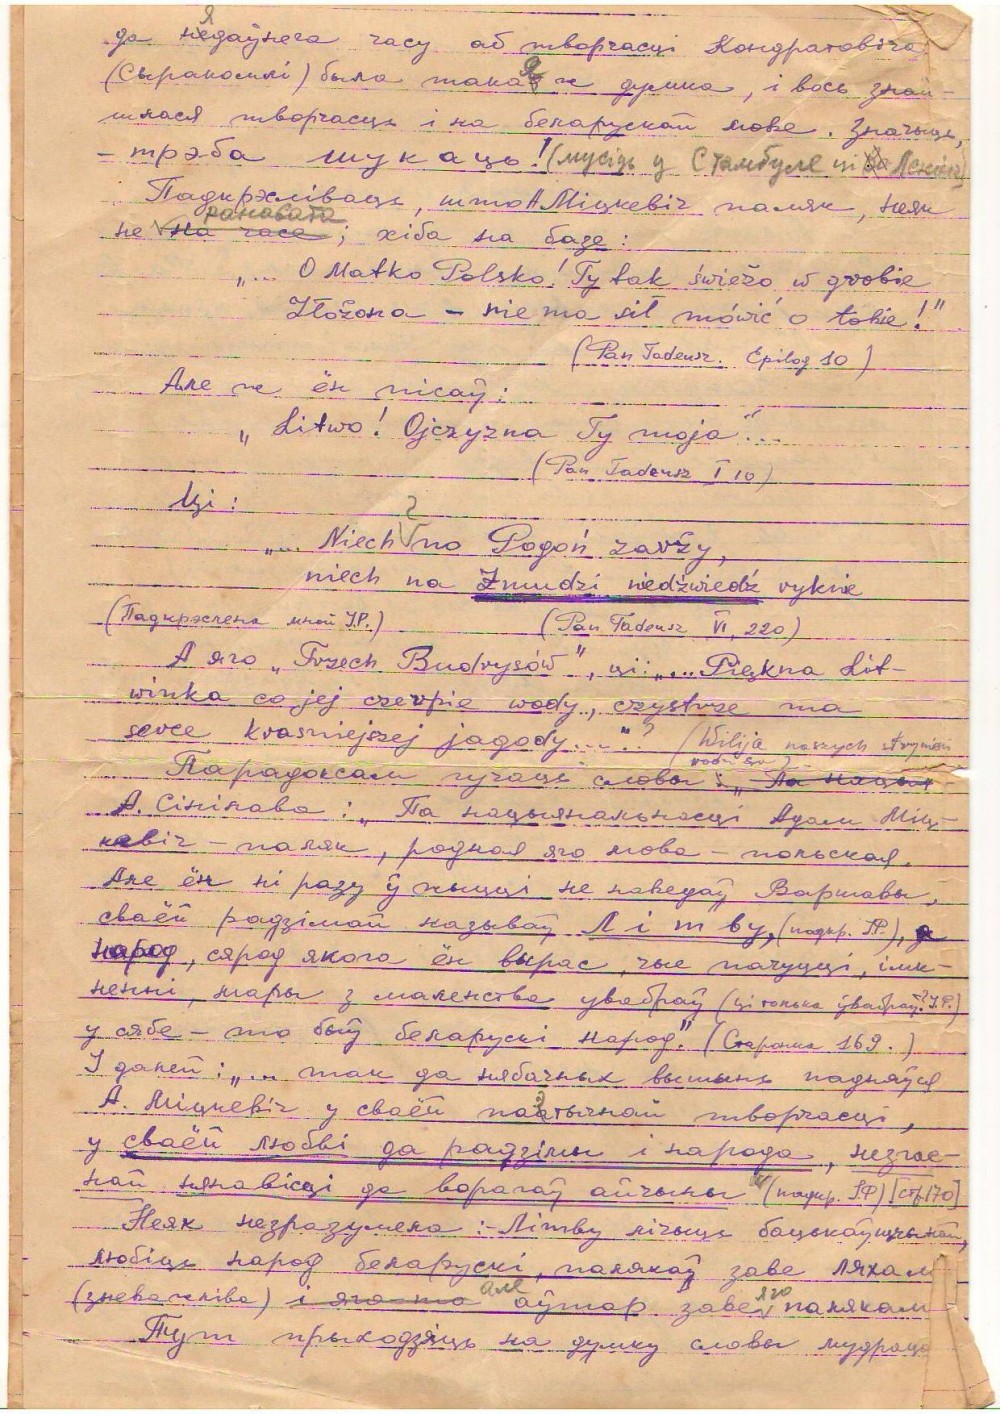 да нядаўнега часу аб творчасці Кондратовіча
(Сыракомлі) была такая ж думка, і вось знай-
шлася творчасць і на беларускай мове. Значыць,
– трэба шукаць! (мусіць у Стамбуле ці
Падкрэсліваць, што А Міцкевіч паляк, неяк
ранавата
не на часе; хіба на базе:
„... O Matko Polsko! Ty tak świeżo w grobie
Złożona – nie ma sił mówić o tobie!"
(Pan Tadeusz. Epilog 10)
Але ж ён пісаў:
„Litwo! Ojczyzna Ty moja"...
(Pan Tadeusz I 10)
Ці:
?
„... Niech no Pogoń zarży,
niech na Żmudzi niedźwiedź ryknie
(Падкрэслена мной І.Р.) (Pan Tadeusz VI, 220)
А яго „Trzech Budrysów", ці „... Piękna Lit-
winka co jej czerpie wody, czystrze ma
serce kraśniejszej jagody..."? (Wilija naszych strumieni
rodzi
Парадоксам гучаць словы: „Па нацыя
А. Сінілава: „Па нацыянальнасці Адам Міц-
кевіч – паляк, родная яго мова – польская.
Але ён ні разу ў жыцці не наведаў Варшавы,
сваёй радзімай называў Літву, (падкр. І.Р.), а
народ, сярод якога ён вырас, чые пачуцці, імк-
ненні, мары з маленства увабраў (ці толькі ўвабраў? І.Р.)
у сябе – то быў беларускі народ." (Старонка 169.)
І далей: „... так да нябачных вышынь падняўся
А. Міцкевіч у сваёй паэтычнай творчасці,
у сваёй любві да радзімы і народа, незгас-
най нянавісці да ворагаў айчыны" (падкр. І.Р) [стр 170]
Неяк незразумела: – Літву лічыць бацькаўшчынай,
любіць народ беларускі, палякаў заве ляхам
(зневажліва) і яго то але аўтар заве яго палякам
Тут прыходзяць на думку словы мудраца